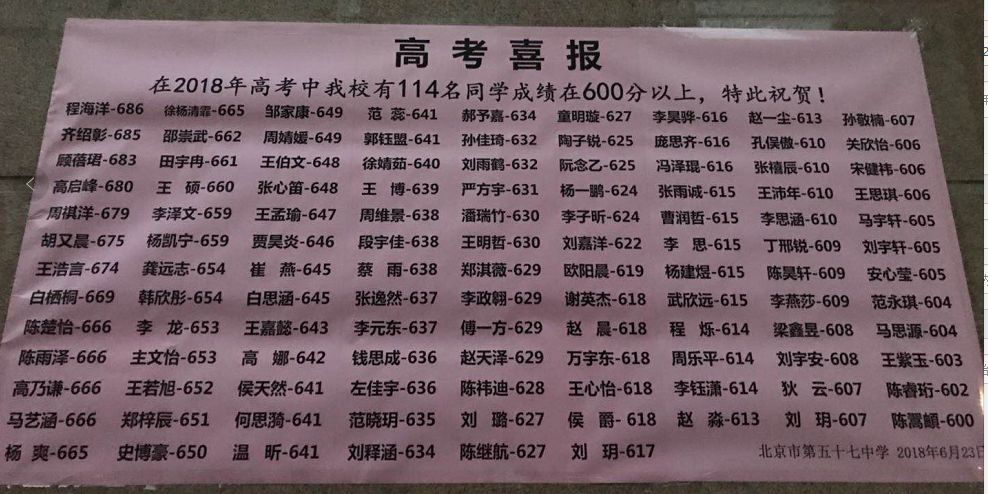 高考喜报
在2018年高考中我校有114名同学成绩在600分以上，特此祝贺！
程海洋-686 徐杨清霏-665 邹家康-649 范 蕊-641 郝予嘉-634 童明璇-627 李昊骅-616 赵一尘-613 孙敬楠-607
齐绍彰-685 邵崇武-662 周婧媛-649 郭钰盟-641 孙佳琦-632 陶子锐-625 庞思齐-616 孔俣傲-610 关欣怡-606
顾蓓珺-683 田宇冉-661 王伯文-648 徐婧茹-640 刘雨鹤-632 阮念乙-625 冯泽琨-616 张禧辰-610 宋健祎-606
高启峰-680 王 硕-660 张心笛-648 王 博-639 严方宇-631 杨一鹏-624 张雨诚-615 王沛年-610 王思琪-606
周祺洋-679 李泽文-659 王孟瑜-647 周维景-638 潘瑞竹-630 李子昕-624 曹润哲-615 李思涵-610 马宇轩-605
胡又晨-675 杨凯宁-659 贾昊炎-646 段宇佳-638 王明哲-630 刘嘉洋-622 李 思-615 丁邢锐-609 刘宇轩-605
王浩言-674 龚远志-654 崔 燕-645 蔡 雨-638 郑淇薇-629 欧阳晨-619 杨建煜-615 陈昊轩-609 安心莹-605
白栖桐-669 韩欣彤-654 白思涵-645 张逸然-637 李政翱-629 谢英杰-618 武欣远-615 李燕莎-609 范永琪-604
陈楚怡-666 李 龙-653 王嘉懿-643 李元东-637 傅一方-629 赵 晨-618 程 烁-614 梁鑫昱-608 马思源-604
陈雨泽-666 主文怡-653 高 娜-642 钱思成-636 赵天泽-629 万宇东-618 周乐平-614 刘宇安-608 王紫玉-603
高乃谦-666 王若旭-652 侯天然-641 左佳宇-636 陈祎迪-628 王心怡-618 李钰潇-614 狄 云-607 陈睿珩-602
马艺涵-666 郑梓辰-651 何思漪-641 范晓玥-635 刘 璐-627 侯 爵- 618 赵 淼-613 刘 玥-607 陈暠頔-600
杨 爽-665 史博豪-650 温 昕-641 刘释涵-634 陈继航-627 刘 玥-617
北京市第五十七中学 2018年6月23日